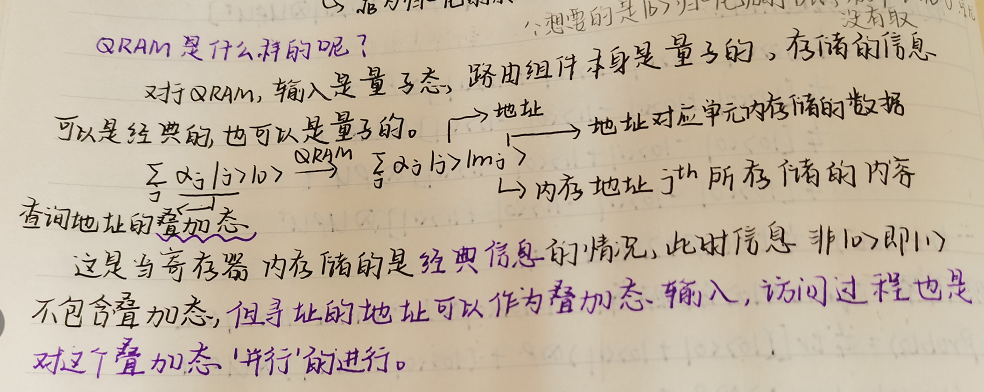 没有取
QRAM是什么样的呢?
对于QRAM, 输入是量子态, 路由组件本身是量子的, 存储的信息
可以是经典的, 也可以是量子的。
→地址
→地址对应单元内存储的数据
∑j αj|j>|0> QRAM→ ∑j αj|j>|mj>
↳内存地址 jth 所存储的内容
查询地址的叠加态
这是当寄存器内存储的是经典信息的情况, 此时信息非|0>即|1>
不包含叠加态, 但寻址的地址可以作为叠加态输入, 访问过程也是
对这个叠加态'并行'的进行。